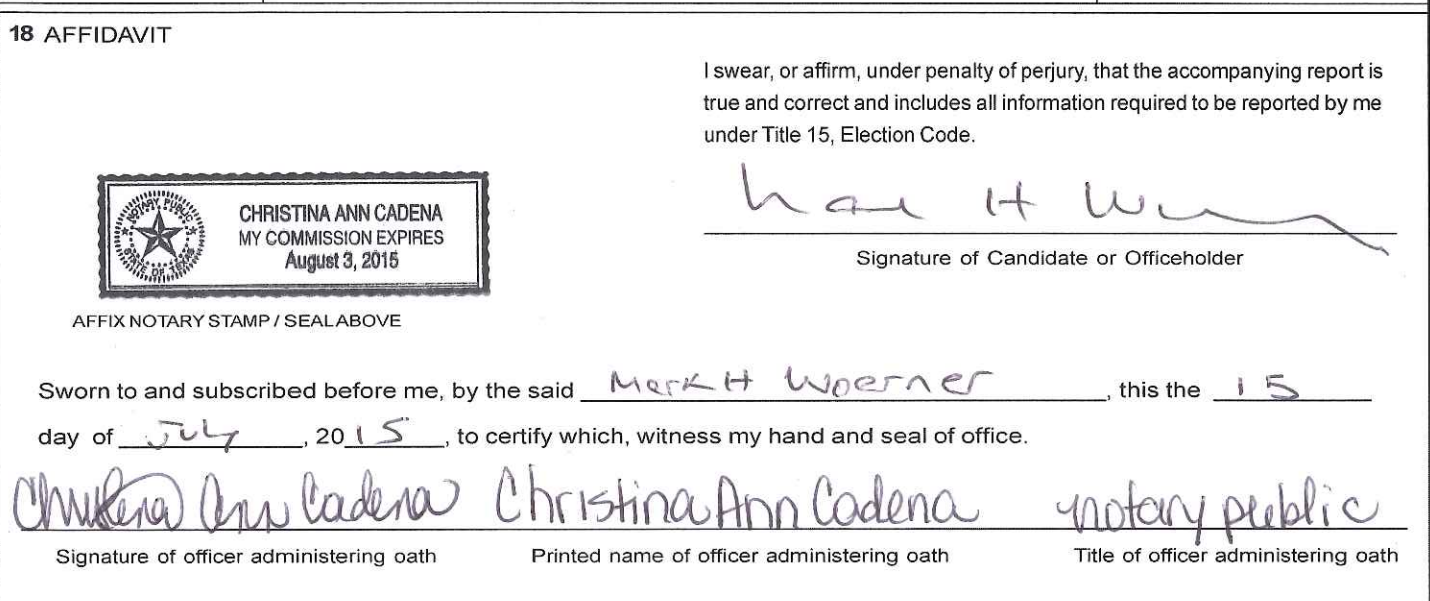 18 AFFIDAVIT
I swear, or affirm, under penalty of perjury, that the accompanying report is
true and correct and includes all information required to be reported by me
under Title 15, Election Code.
Signature of Candidate or Officeholder
NOTARY PUBLIC
STATE OF TEXAS
CHRISTINA ANN CADENA
MY COMMISSION EXPIRES
August 3, 2015
AFFIX NOTARY STAMP / SEAL ABOVE
Sworn to and subscribed before me, by the said Mark H Woerner, this the 15
day of July, 2015, to certify which, witness my hand and seal of office.
Christina Ann Cadena Christina Ann Cadena notary public
Signature of officer administering oath Printed name of officer administering oath Title of officer administering oath